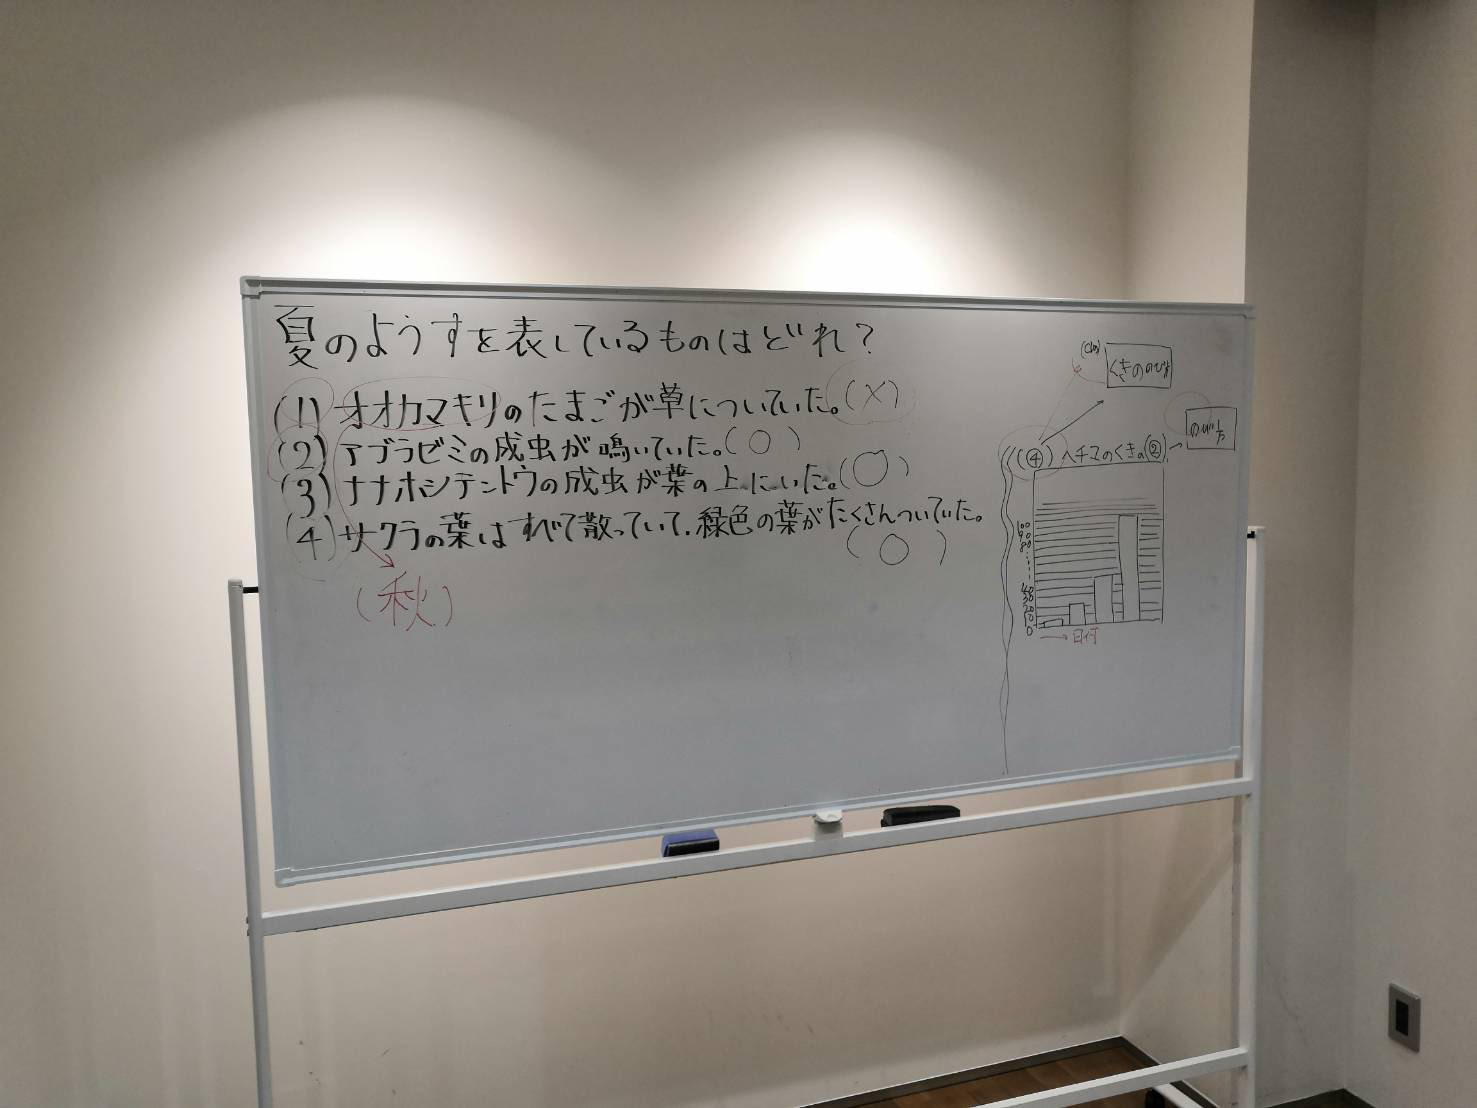 夏のようすを表しているものはどれ？
(1) オオカマキリのたまごが草についていた。(×)
(2) アブラゼミの成虫が鳴いていた。(○)
(3) ナナホシテントウの成虫が葉の上にいた。(○)
(4) サクラの葉はすべて散っていて、緑色の葉がたくさんついていた。
(○)
(秋)
(cm)
くきののび
のびた
(④) ヘチマのくきの(②)
100
90
80
40
30
20
10
0
→日付